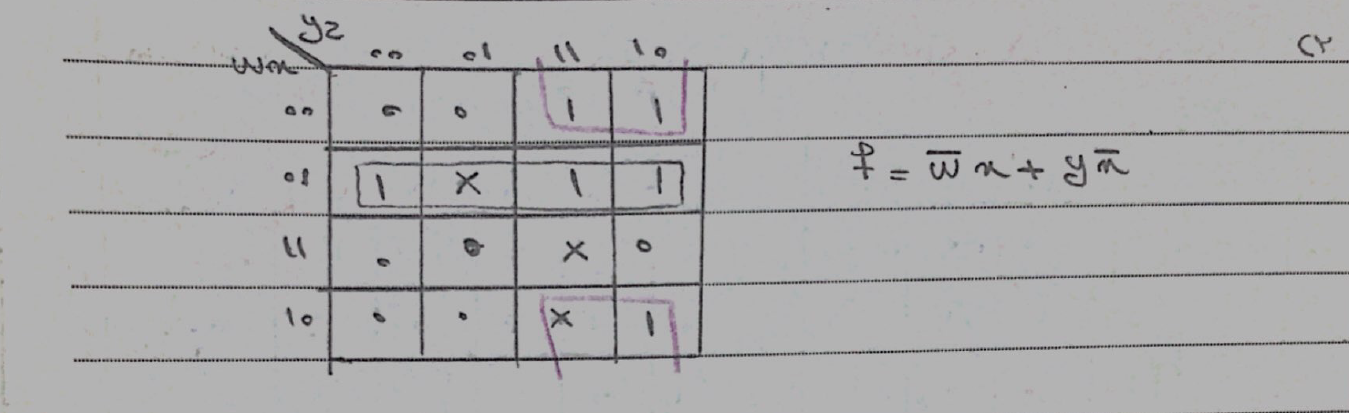 yz
wx 00 01 11 10
00 0 0 1 1
01 1 X 1 1
11 0 0 X 0
10 0 0 X 1
f = w̅x + yx̅